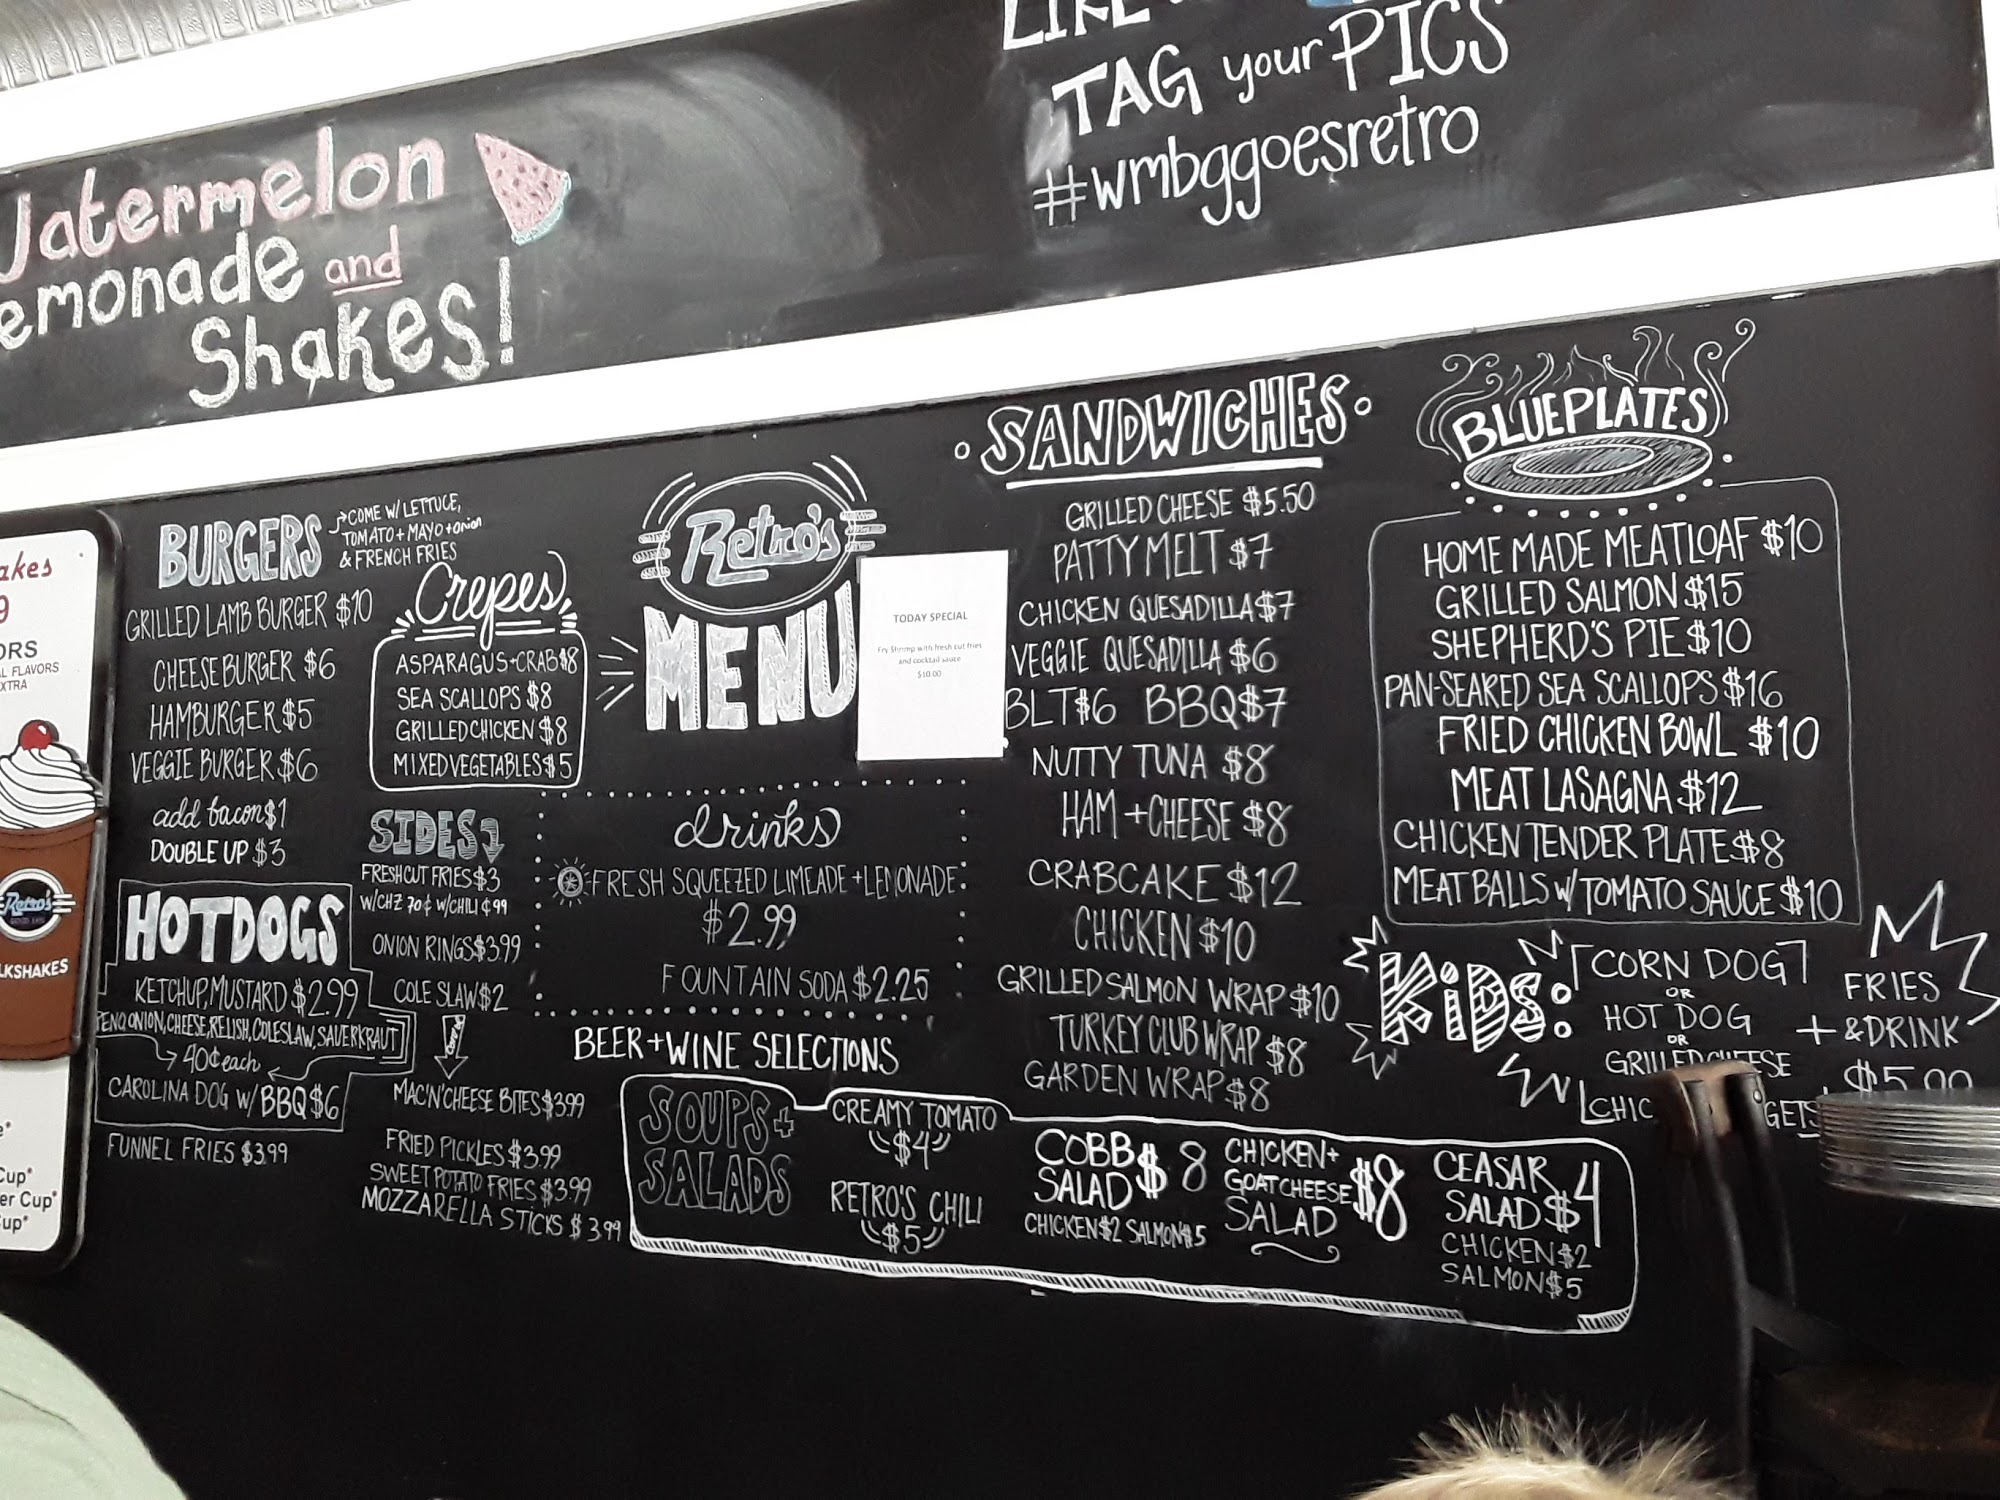 Watermelon
Lemonade and
Shakes!
TAG your PICS
#wmbggoesretro
BURGERS
COME W/ LETTUCE,
TOMATO + MAYO + onion
& FRENCH FRIES
GRILLED LAMB BURGER $10
CHEESEBURGER $6
HAMBURGER $5
VEGGIE BURGER $6
add bacon $1
DOUBLE UP $3
HOTDOGS
KETCHUP, MUSTARD $2.99
ONION, CHEESE, RELISH, COLESLAW, SAUERKRAUT
40¢ each
CAROLINA DOG W/ BBQ $6
FUNNEL FRIES $3.99
Crepes
ASPARAGUS + CRAB $8
SEA SCALLOPS $8
GRILLED CHICKEN $8
MIXED VEGETABLES $5
SIDES
FRESH CUT FRIES $3
W/CHZ 70¢ W/CHILI ¢99
ONION RINGS $3.99
COLE SLAW $2
MAC'N'CHEESE BITES $3.99
FRIED PICKLES $3.99
SWEET POTATO FRIES $3.99
MOZZARELLA STICKS $3.99
Retro's
MENU
TODAY SPECIAL
Fry Shrimp with fresh cut fries
and cocktail sauce
$10.00
drinks
FRESH SQUEEZED LIMEADE + LEMONADE
$2.99
FOUNTAIN SODA $2.25
BEER + WINE SELECTIONS
SOUPS +
SALADS
CREAMY TOMATO
$4
RETRO'S CHILI
$5
COBB
SALAD $8
CHICKEN $2 SALMON $5
CHICKEN +
GOAT CHEESE
SALAD $8
CEASAR
SALAD $4
CHICKEN $2
SALMON $5
SANDWICHES
GRILLED CHEESE $5.50
PATTY MELT $7
CHICKEN QUESADILLA $7
VEGGIE QUESADILLA $6
BLT $6 BBQ $7
NUTTY TUNA $8
HAM + CHEESE $8
CRABCAKE $12
CHICKEN $10
GRILLED SALMON WRAP $10
TURKEY CLUB WRAP $8
GARDEN WRAP $8
BLUEPLATES
HOME MADE MEATLOAF $10
GRILLED SALMON $15
SHEPHERD'S PIE $10
PAN-SEARED SEA SCALLOPS $16
FRIED CHICKEN BOWL $10
MEAT LASAGNA $12
CHICKEN TENDER PLATE $8
MEATBALLS W/ TOMATO SAUCE $10
KiDS:
CORN DOG
OR
HOT DOG
OR
GRILLED CHEESE
+ FRIES
& DRINK
$5.00
Retro's